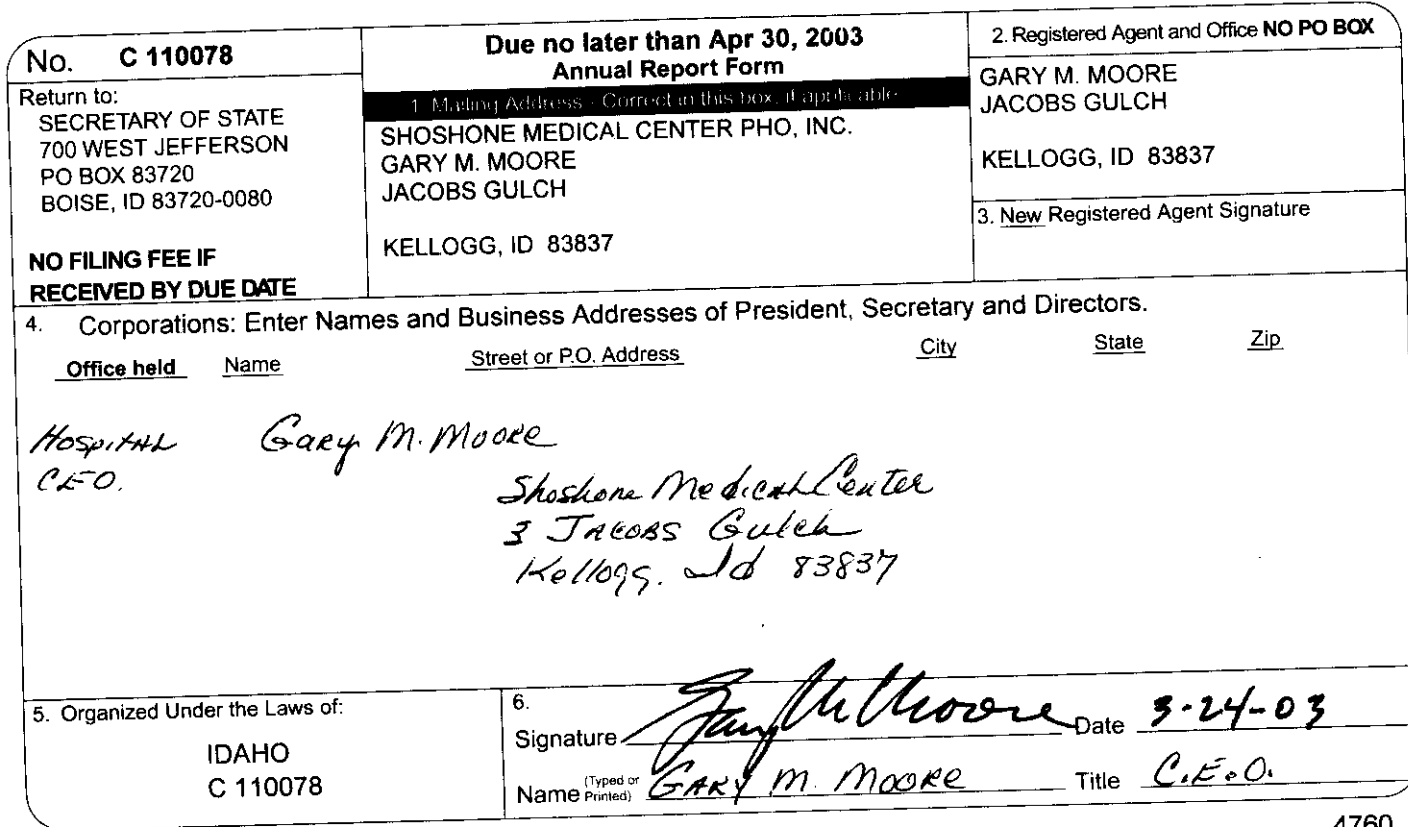 No. C 110078
Return to:
SECRETARY OF STATE
700 WEST JEFFERSON
PO BOX 83720
BOISE, ID 83720-0080
NO FILING FEE IF
RECEIVED BY DUE DATE
Due no later than Apr 30, 2003
Annual Report Form
1. Mailing Address - Correct in this box, if applicable
SHOSHONE MEDICAL CENTER PHO, INC.
GARY M. MOORE
JACOBS GULCH
KELLOGG, ID 83837
2. Registered Agent and Office NO PO BOX
GARY M. MOORE
JACOBS GULCH
KELLOGG, ID 83837
3. New Registered Agent Signature
4. Corporations: Enter Names and Business Addresses of President, Secretary and Directors.
Office held Name Street or P.O. Address City State Zip
Hospital Gary M. Moore
C.E.O.
Shoshone Medical Center
3 Jacobs Gulch
Kellogg. Id 83837
5. Organized Under the Laws of:
IDAHO
C 110078
6.
Signature Gary M Moore Date 3-24-03
Name (Typed or Printed) GARY M. MOORE Title C.E.O.
4760